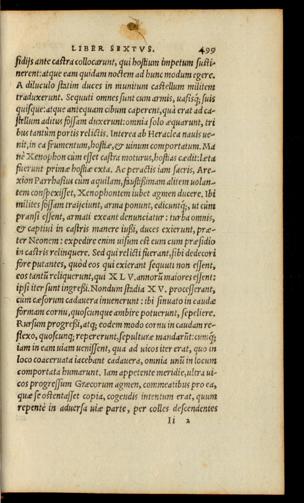 LIBER SEXTVS. 499
sidijs ante castra collocarunt, qui hostium impetum susti-
nerent: atque eam quidam noctem ad hunc modum egere.
A diluculo statim duces in munitum castellum militem
traduxerunt. Sequuti omnes sunt cum armis, uasisq́; suis
quisque: atque antequam cibum caperent, quà erat ad ca-
stellum aditus fossam duxerunt: omnia solo æquarunt, tri
bus tantùm portis relictis. Interea ab Heraclea nauis ue-
nit, in ea frumentum, hostiæ, & uinum comportatum. Ma
nè Xenophon cùm esset castra moturus, hostias cædit: læta
fuerunt primæ hostiæ exta. Ac peractis iam sacris, Are-
xion Parrhasius cùm aquilam, faustissimam alitem uolan-
tem conspexisset, Xenophontem iubet agmen ducere. Ibi
milites fossam traijciunt, arma ponunt, edicuntq́;, ut cùm
pransi essent, armati exeant denunciatur: turba omnis,
& captiui in castris manere iussi, duces exierunt, præ-
ter Neonem: expedire enim uisum est eum cum præsidio
in castris relinquere. Sed qui relicti fuerant, sibi dedecori
fore putantes, quòd eos qui exierant sequuti non essent,
eos tantùm reliquerunt, qui XLV. annorũ maiores essent:
ipsi iter sunt ingressi. Nondum stadia XV. processerant,
cùm cæsorum cadauera inuenerunt: ibi sinuato in caudæ
formam cornu, quoscunque ambire potuerunt, sepeliere.
Rursum progressi, atq; eodem modo cornu in caudam re-
flexo, quoscunq; repererunt, sepulturæ mandarũt: cumq́;
iam in eam uiam uenissent, qua ad uicos iter erat, quo in
loco coaceruata iacebant cadauera, omnia unũ in locum
comportata humarunt. Iam appetente meridie, ultra ui-
cos progressum Græcorum agmen, commeatibus pro ea,
quæ se ostentasset copia, cogendis intentum erat, quum
repentè in aduersa uiæ parte, per colles descendentes
Ii 2